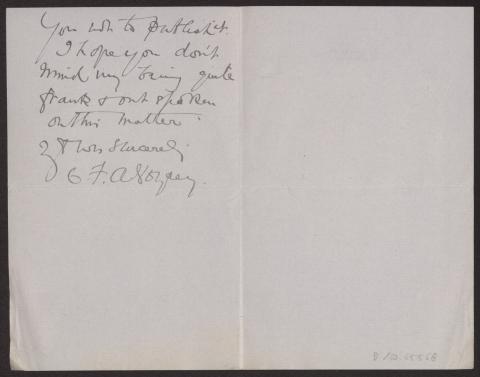 You wish to publish it.
I hope you don't
mind my being quite
frank & out spoken
on this matter.
Yours Sincerely
C F A Voysey.